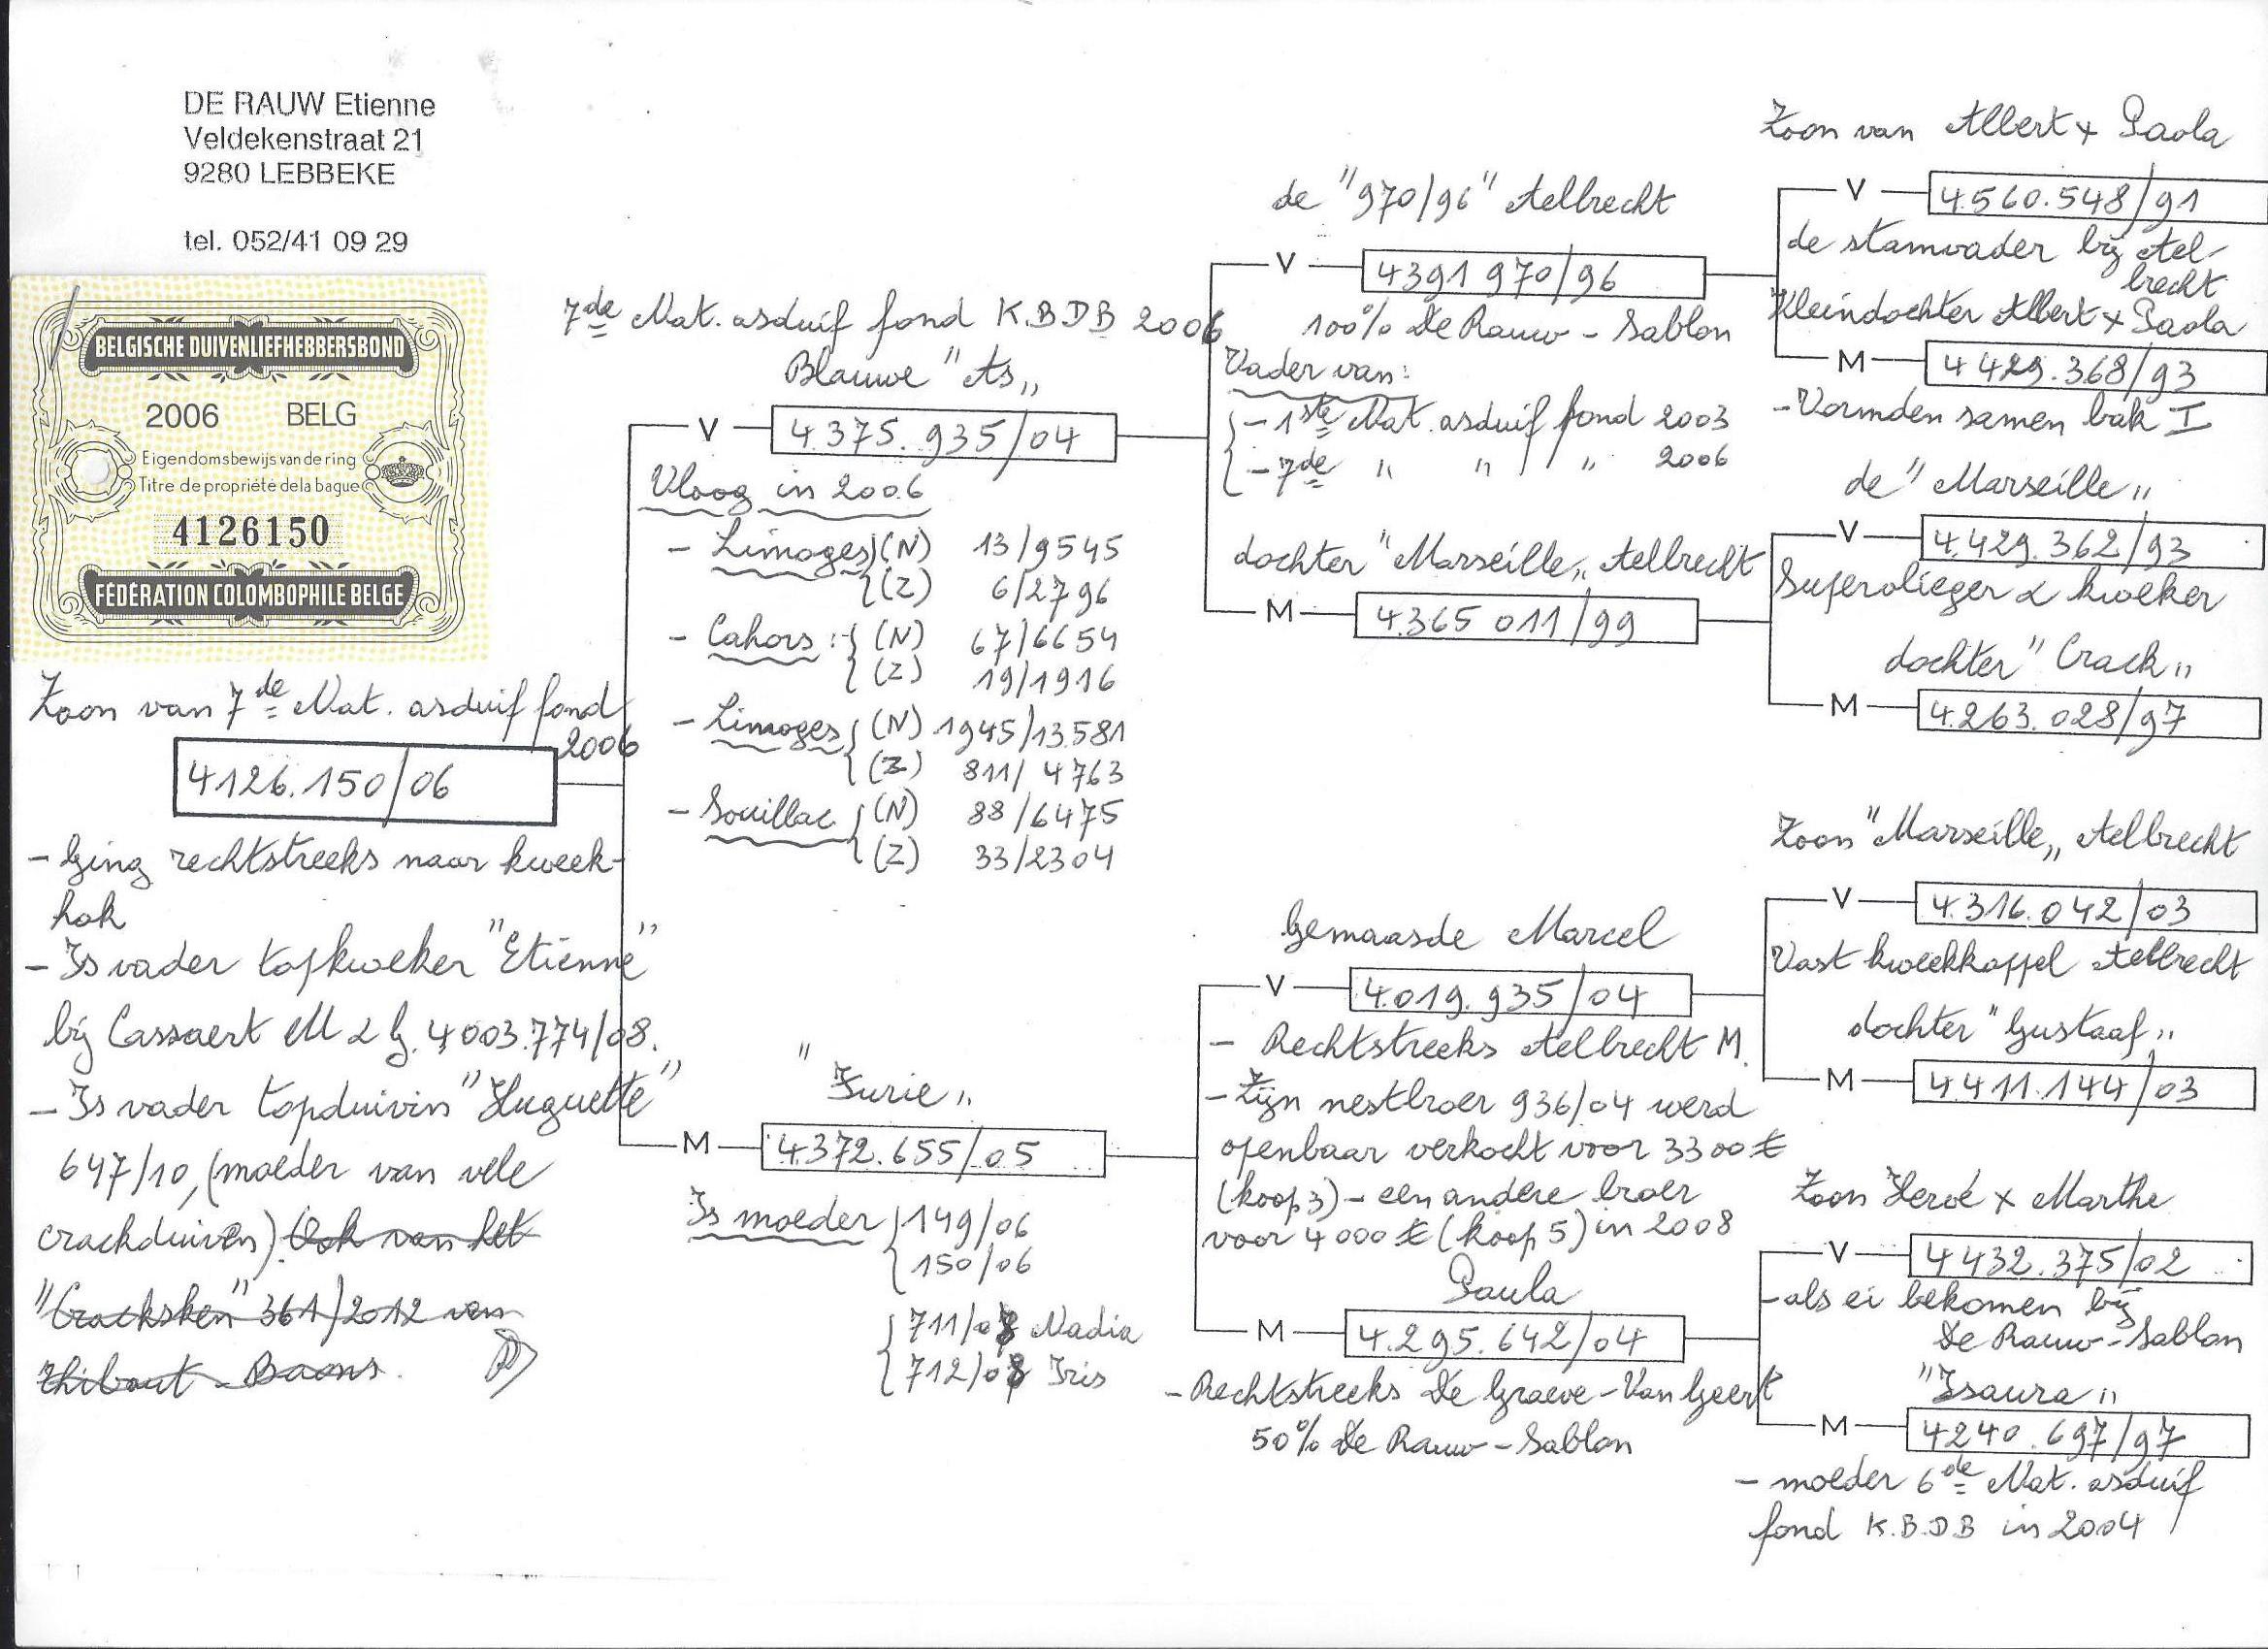 DE RAUW Etienne
Veldekenstraat 21
9280 LEBBEKE
tel. 052/41 09 29
BELGISCHE DUIVENLIEFHEBBERSBOND
2006 BELG
Eigendomsbewijs van de ring
Titre de propriété de la bague
4126150
FÉDÉRATION COLOMBOPHILE BELGE
Zoon van 7de Nat. asduif fond
2006
4126.150/06
- Ging rechtstreeks naar kweek-
hok
- Is vader topkweker "Etienne"
bij Cassaert M & G. 4003.774/08.
- Is vader topduivin "Huguette"
647/10, (moeder van vele
crackduiven). Ook van het
"Cracksken" 361/2012 van
Thibaut - Boons.
7de Nat. asduif fond K.B.D.B 2006
Blauwe "As"
V
4.375.935/04
Vloog in 2006
- Limoges (N) 13/9545
(Z) 6/2796
- Cahors : (N) 67/6654
(Z) 19/1916
- Limoges (N) 1945/13.581
(Z) 811/4763
- Souillac (N) 88/6475
(Z) 33/2304
"Furie"
M
4.372.655/05
Is moeder 149/06
150/06
711/08 Nadia
712/08 Iris
de "970/96" Aelbrecht
V
4391970/96
100% De Rauw - Sablon
Vader van:
- 1ste Nat. asduif fond 2003
- 7de " " " 2006
dochter "Marseille" Aelbrecht
M
4.365 011/99
Gemaasde Marcel
V
4.019.935/04
- Rechtstreeks Aelbrecht M.
- Zijn nestbroer 936/04 werd
openbaar verkocht voor 3300 €
(koop 3) - een andere broer
voor 4000 € (koop 5) in 2008
Paula
M
4.295.642/04
- Rechtstreeks De Graeve - Van Geert
50% De Rauw - Sablon
Zoon van Albert x Paola
V
4.560.548/91
de stamvader bij Ael-
brecht
Kleindochter Albert x Paola
M
4 429.368/93
- Vormden samen bak I
de "Marseille"
V
4.429.362/93
Supervlieger & kweker
dochter "Crack"
M
4.263.028/97
Zoon "Marseille" Aelbrecht
V
4.316.042/03
Vast kweekkoppel Aelbrecht
dochter "Gustaaf"
M
4.411.144/03
Zoon Hervé x Marthe
V
4 432.375/02
- als ei bekomen bij
De Rauw - Sablon
"Isaura"
M
4240.697/97
- moeder 6de Nat. asduif
fond K.B.D.B in 2004